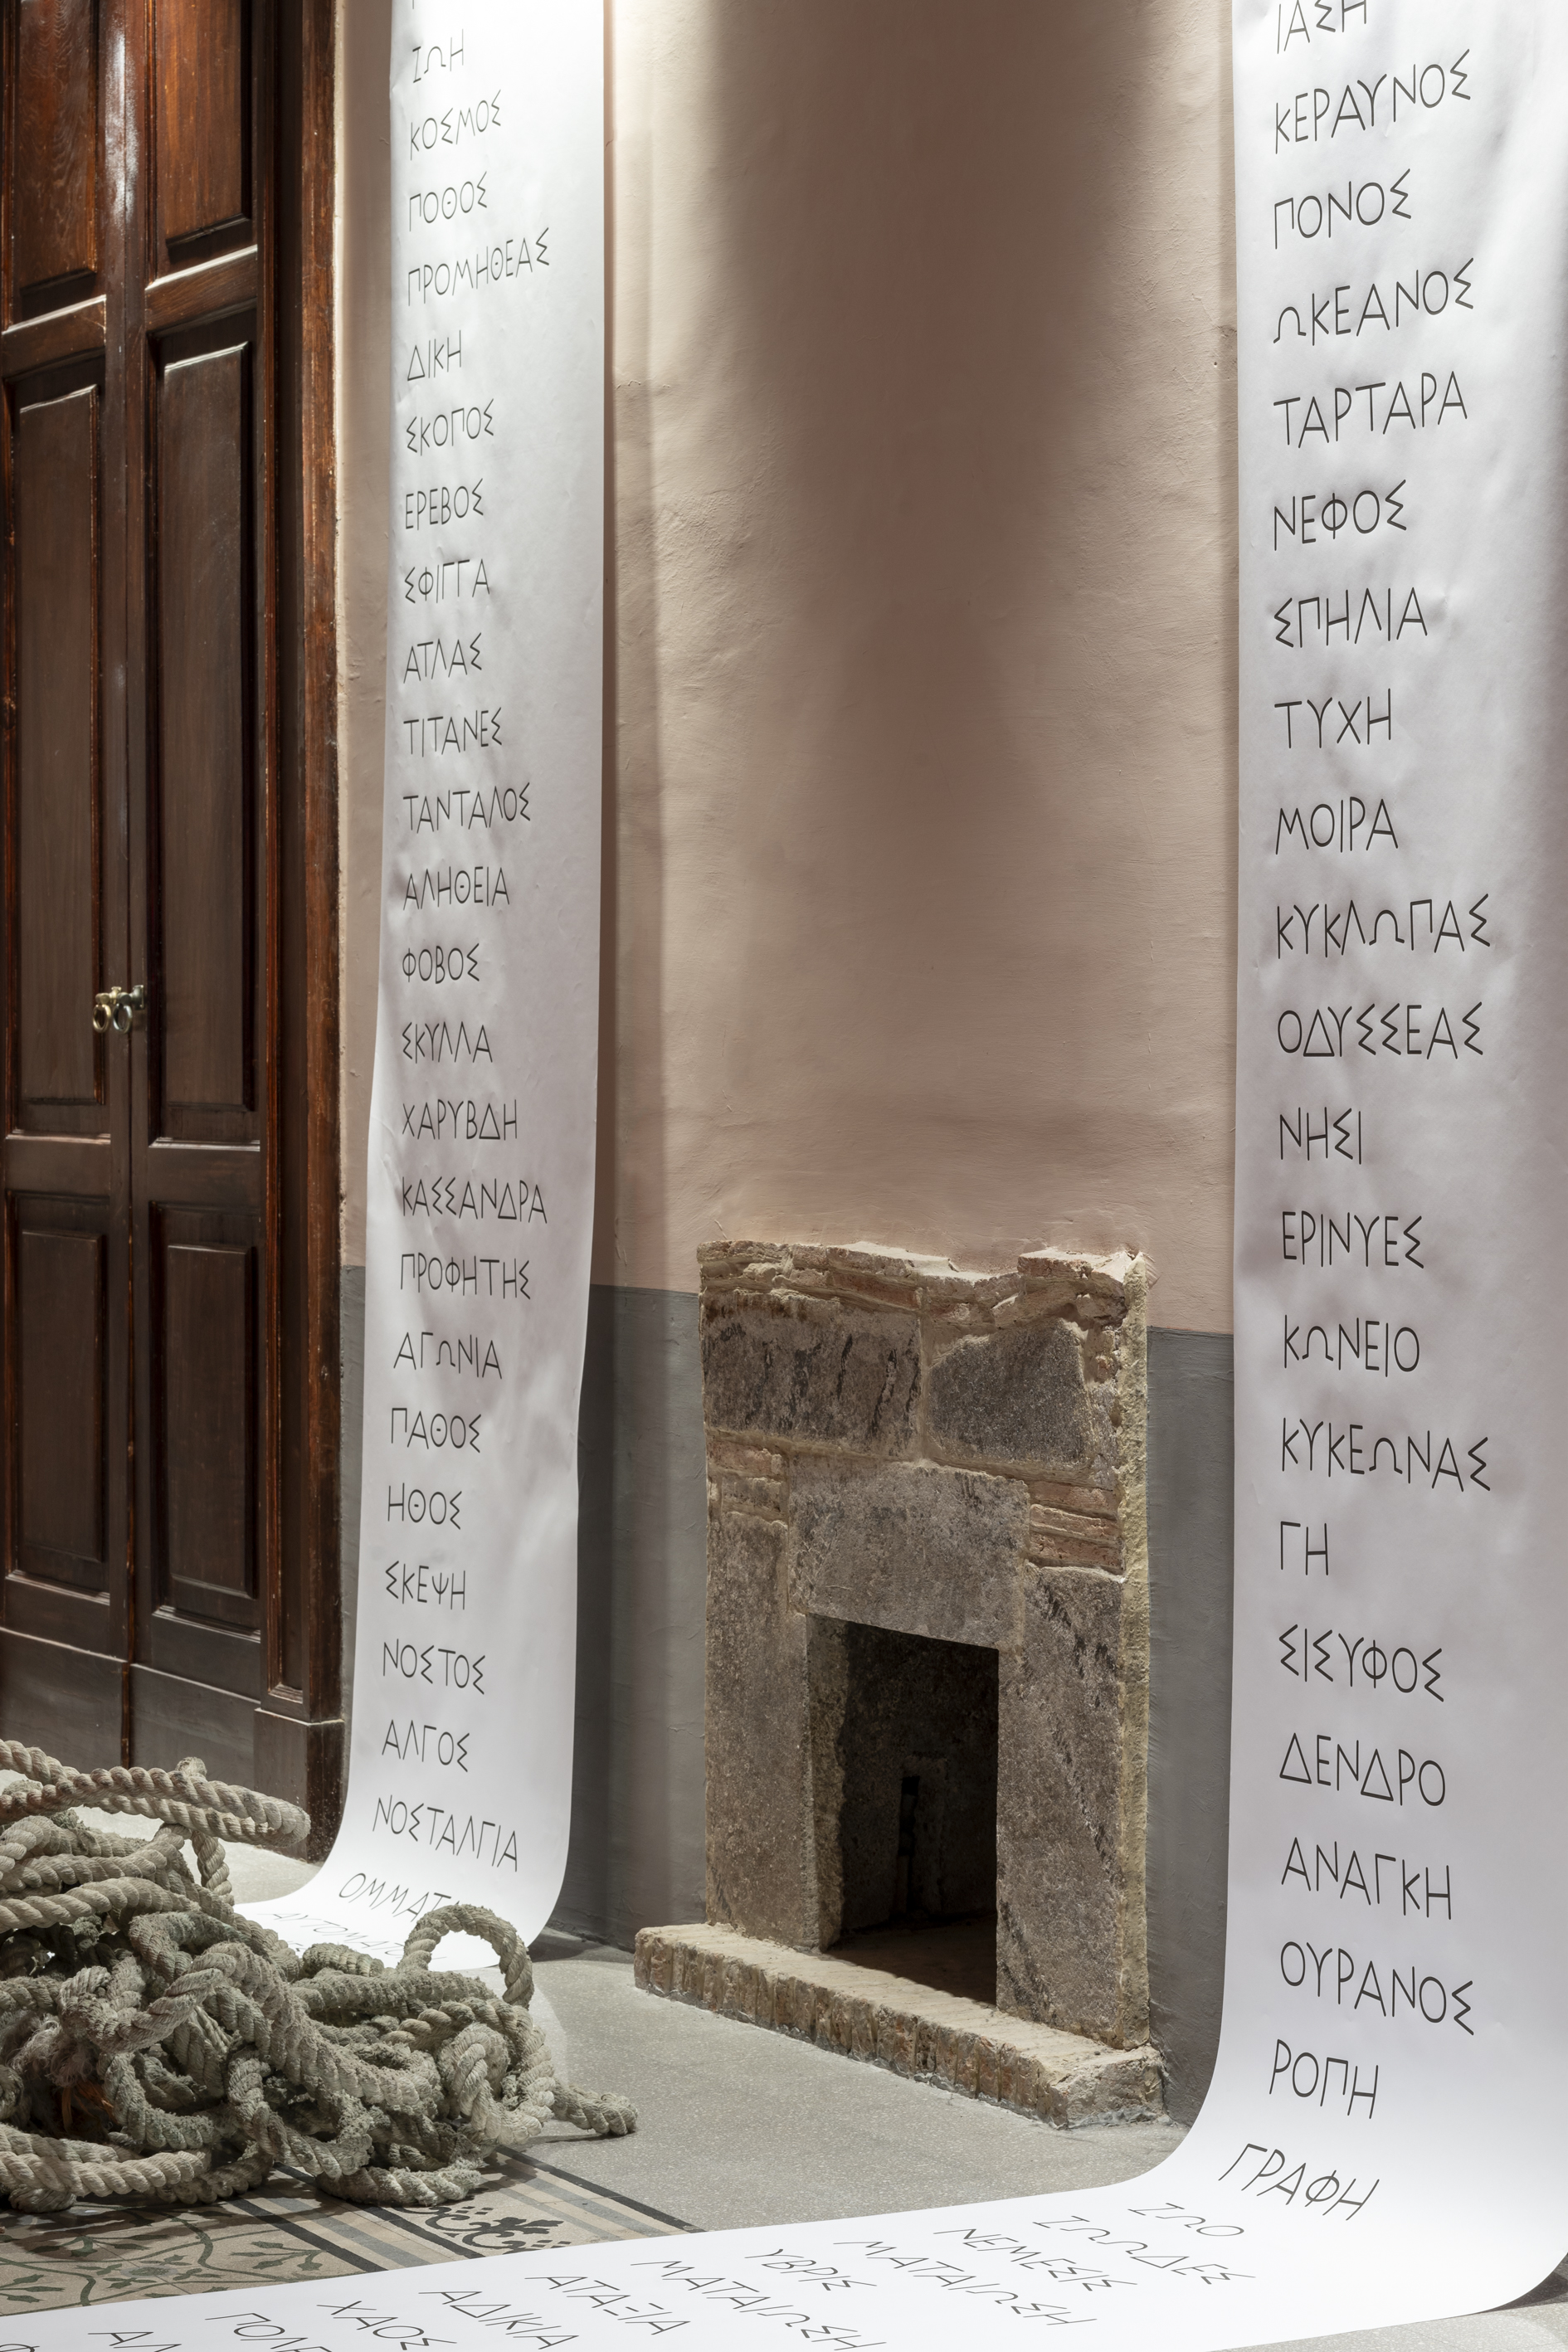 ΖΩΗ
ΚΟΣΜΟΣ
ΠΟΘΟΣ
ΠΡΟΜΗΘΕΑΣ
ΔΙΚΗ
ΣΚΟΠΟΣ
ΕΡΕΒΟΣ
ΣΦΙΓΓΑ
ΑΤΛΑΣ
ΤΙΤΑΝΕΣ
ΤΑΝΤΑΛΟΣ
ΑΛΗΘΕΙΑ
ΦΟΒΟΣ
ΣΚΥΛΛΑ
ΧΑΡΥΒΔΗ
ΚΑΣΣΑΝΔΡΑ
ΠΡΟΦΗΤΗΣ
ΑΓΩΝΙΑ
ΠΑΘΟΣ
ΗΘΟΣ
ΣΚΕΨΗ
ΝΟΣΤΟΣ
ΑΛΓΟΣ
ΝΟΣΤΑΛΓΙΑ
ΙΑΣΗ
ΚΕΡΑΥΝΟΣ
ΠΟΝΟΣ
ΩΚΕΑΝΟΣ
ΤΑΡΤΑΡΑ
ΝΕΦΟΣ
ΣΠΗΛΙΑ
ΤΥΧΗ
ΜΟΙΡΑ
ΚΥΚΛΩΠΑΣ
ΟΔΥΣΣΕΑΣ
ΝΗΣΙ
ΕΡΙΝΥΕΣ
ΚΩΝΕΙΟ
ΚΥΚΕΩΝΑΣ
ΓΗ
ΣΙΣΥΦΟΣ
ΔΕΝΔΡΟ
ΑΝΑΓΚΗ
ΟΥΡΑΝΟΣ
ΡΟΠΗ
ΓΡΑΦΗ
ΖΩΟ
ΖΩΩΔΕΣ
ΝΕΜΕΣΙΣ
ΜΑΤΑΙΩΣΗ
ΥΒΡΙΣ
ΜΑΤΑΙΩΣΗ
ΑΤΑΞΙΑ
ΑΔΙΚΙΑ
ΧΑΟΣ